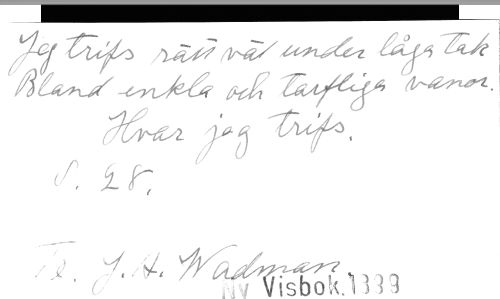 Jag trifs rätt väl under låga tak
Bland enkla och tarfliga vanor.
Hvar jag trifs.
S. 28.
Te. J. A. Wadman
Ny Visbok. 1889